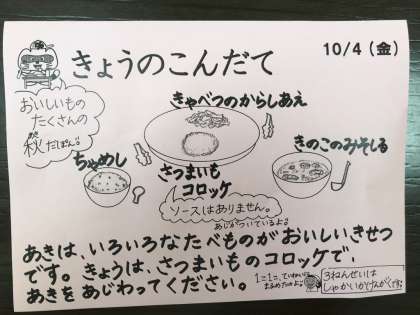 きょうのこんだて
10/4（金）
おいしいもの
たくさんの
秋だぽん♪
あき
きゃべつのからしあえ
きのこのみそしる
ちゃめし
さつまいも
コロッケ
ソースはありません。
あじがついているよ♪
あきは、いろいろなたべものがおいしいきせつ
です。きょうは、さつまいものコロッケで、
あきをあじわってください。
1こ1こ、ていねいに
まるめたのよ♪
3ねんせいは
しゃかいかけんがくです